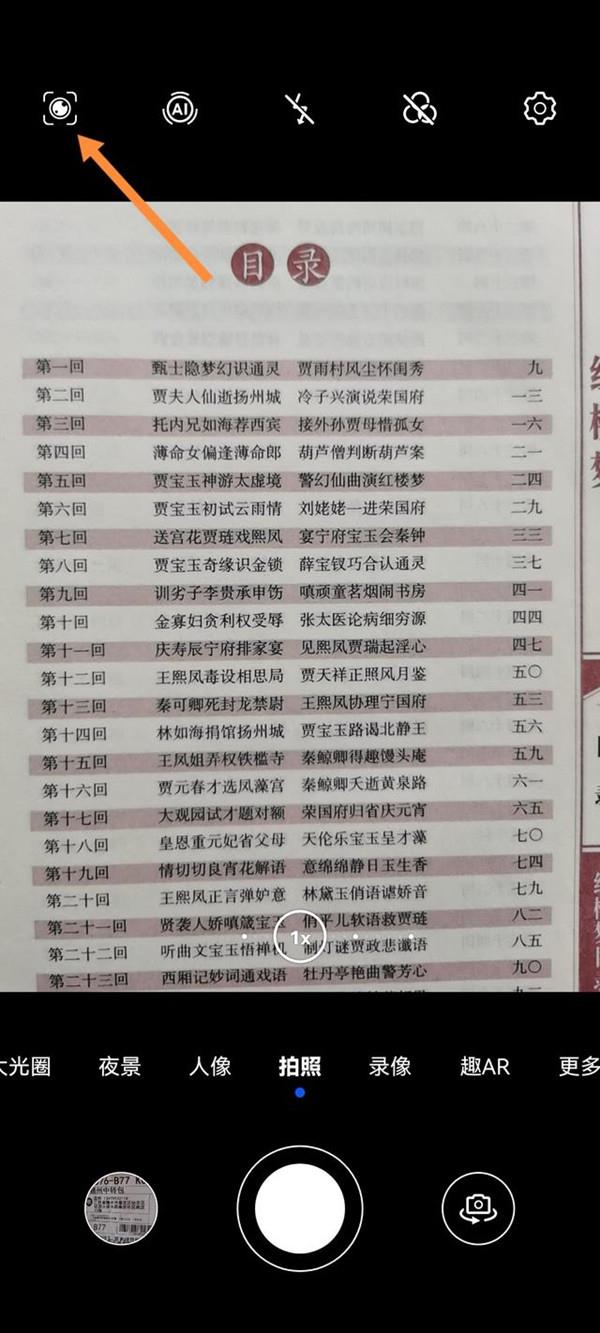 AI
目录
第一回 甄士隐梦幻识通灵 贾雨村风尘怀闺秀 九
第二回 贾夫人仙逝扬州城 冷子兴演说荣国府 一三
第三回 托内兄如海荐西宾 接外孙贾母惜孤女 一六
第四回 薄命女偏逢薄命郎 葫芦僧判断葫芦案 二一
第五回 贾宝玉神游太虚境 警幻仙曲演红楼梦 二四
第六回 贾宝玉初试云雨情 刘姥姥一进荣国府 二九
第七回 送宫花贾琏戏熙凤 宴宁府宝玉会秦钟 三三
第八回 贾宝玉奇缘识金锁 薛宝钗巧合认通灵 三七
第九回 训劣子李贵承申饬 嗔顽童茗烟闹书房 四一
第十回 金寡妇贪利权受辱 张太医论病细穷源 四四
第十一回 庆寿辰宁府排家宴 见熙凤贾瑞起淫心 四七
第十二回 王熙凤毒设相思局 贾天祥正照风月鉴 五〇
第十三回 秦可卿死封龙禁尉 王熙凤协理宁国府 五三
第十四回 林如海捐馆扬州城 贾宝玉路谒北静王 五六
第十五回 王凤姐弄权铁槛寺 秦鲸卿得趣馒头庵 五九
第十六回 贾元春才选凤藻宫 秦鲸卿夭逝黄泉路 六一
第十七回 大观园试才题对额 荣国府归省庆元宵 六五
第十八回 皇恩重元妃省父母 天伦乐宝玉呈才藻 七〇
第十九回 情切切良宵花解语 意绵绵静日玉生香 七四
第二十回 王熙凤正言弹妒意 林黛玉俏语谑娇音 七九
第二十一回 贤袭人娇嗔箴宝玉 俏平儿软语救贾琏 八二
第二十二回 听曲文宝玉悟禅机 制灯谜贾政悲谶语 八五
第二十三回 西厢记妙词通戏语 牡丹亭艳曲警芳心 九〇
1x
大光圈 夜景 人像 拍照 录像 趣AR 更多
B77